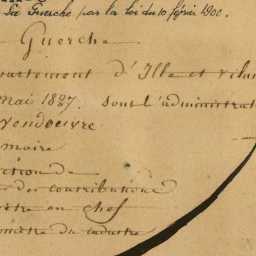 La Guerche par la loi du 10 février 1900.
Guerche
partement d'Ille et Vilai
Mai 1827. sous l'administrat
Vendœuvre
maire
ction de
des contributions
ètre en chef
mètre du cadastre